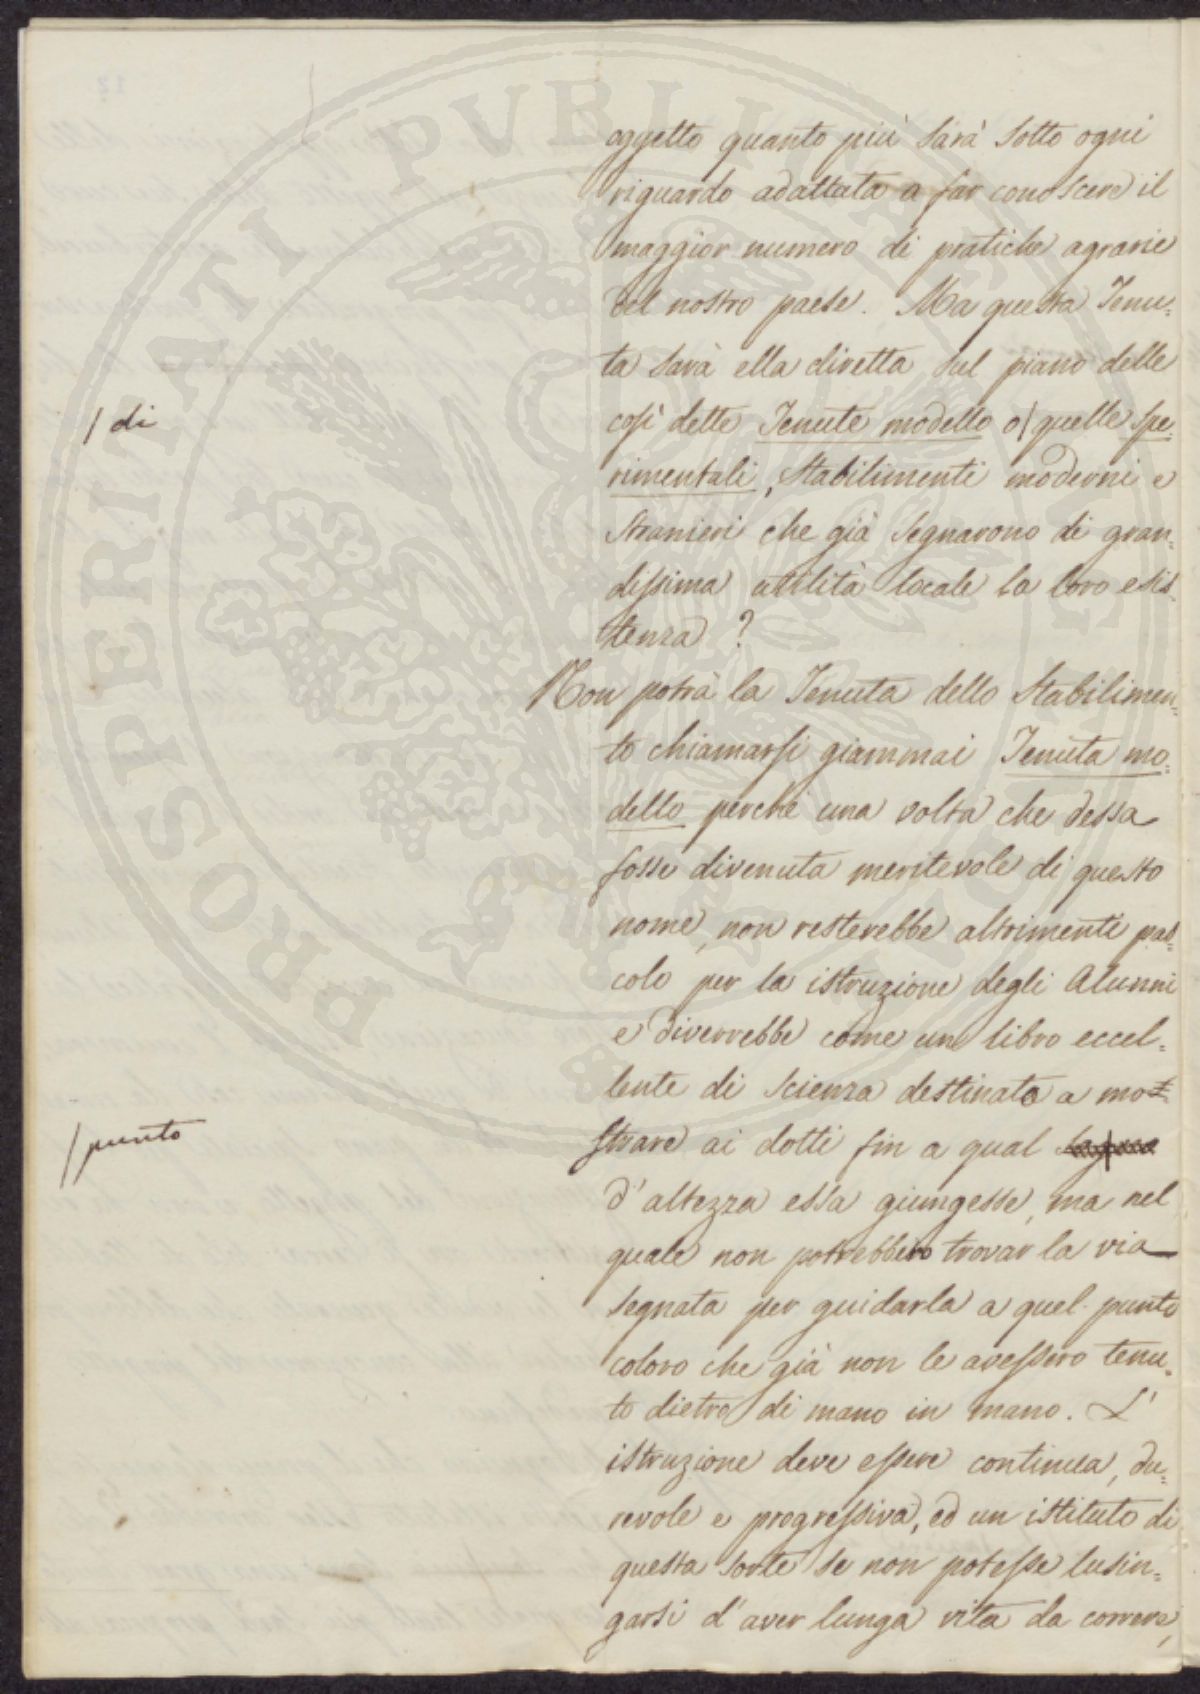 oggetto quanto più sarà sotto ogni
riguardo adattata a far conoscere il
maggior numero di pratiche agrarie
del nostro paese. Ma questa Tenu=
ta sarà ella diretta sul piano delle
/ di
così dette Tenute modello o/ quelle spe=
rimentali, stabilimenti moderni e
stranieri che già segnarono di gran=
dissima utilità locale la loro esis=
tenza?
Non potrà la Tenuta dello Stabilimen=
to chiamarsi giammai Tenuta mo=
dello perchè una volta che dessa
fosse divenuta meritevole di questo
nome, non resterebbe altrimenti pas=
colo per la istruzione degli Alunni
e diverrebbe come un libro eccel=
lente di scienza destinato a mo=
/ punto
strare ai dotti fin a qual
d'altezza essa giungesse, ma nel
quale non potrebbero trovar la via
segnata per guidarla a quel punto
coloro che già non le avessero tenu=
to dietro di mano in mano. L'
istruzione deve essere continua, du=
revole e progressiva, ed un istituto di
questa sorte se non potesse lusin=
garsi d'aver lunga vita da correre,
PROSPERITATI PUBLICAE